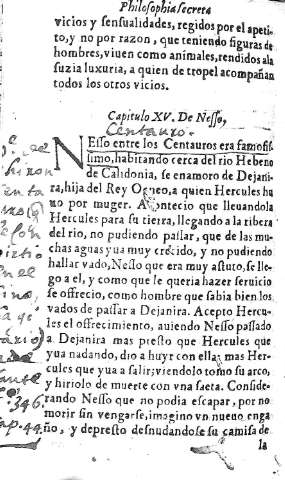 Philosophia secreta
vicios y sensualidades, regidos por el apeti-
to, y no por razon, que teniendo figuras de
hombres, viuen como animales, rendidos a la
suzia luxuria, a quien de tropel acompañan
todos los otros vicios.
Capitulo XV. De Nesso,
Centauro.
NEsso entre los Centauros era famosis-
simo, habitando cerca del rio Hebeno
de Calidonia, se enamoro de Dejani-
ra, hija del Rey Oeneo, a quien Hercules hu
uo por muger. Acontecio que lleuandola
Hercules para su tierra, llegando a la ribera
del rio, no pudiendo passar, que de las mu-
chas aguas yua muy crecido, y no pudiendo
hallar vado, Nesso que era muy astuto, se lle-
go a el, y como que le queria hazer seruicio
se offrecio, como hombre que sabia bien los
vados de passar a Dejanira. Acepto Hercu-
les el offrecimento, auiendo Nesso passado
a Dejanira mas presto que Hercules que
yua nadando, dio a huyr con ella; mas Her-
cules que yua a salir, viendolo tomo su arco,
y hiriolo de muerte con vna saeta. Conside-
rando Nesso que no podia escapar, por no
morir sin vengarse, imagino vn nueuo enga
ño, y depresto desnudandose su camisa de
la
346.
ap. 44.